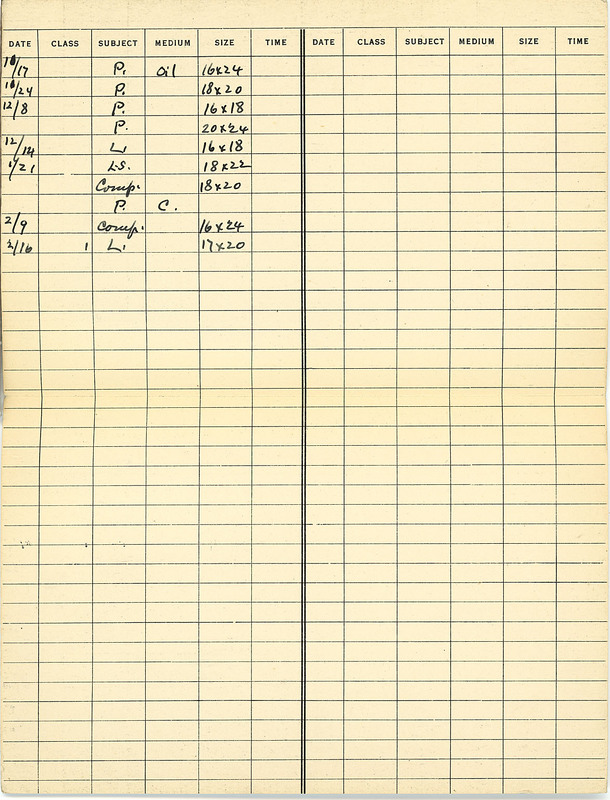 DATE CLASS SUBJECT MEDIUM SIZE TIME DATE CLASS SUBJECT MEDIUM SIZE TIME
10/17 P. oil 16x24
10/24 P. 18x20
12/8 P. 16x18
P. 20x24
12/14 L. 16x18
1/21 L.S. 18x22
Comp. 18x20
P. C.
2/9 Comp. 16x24
2/16 1 L. 17x20